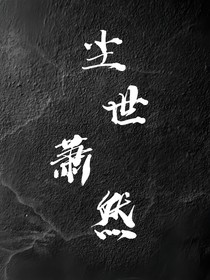 尘世
萧然